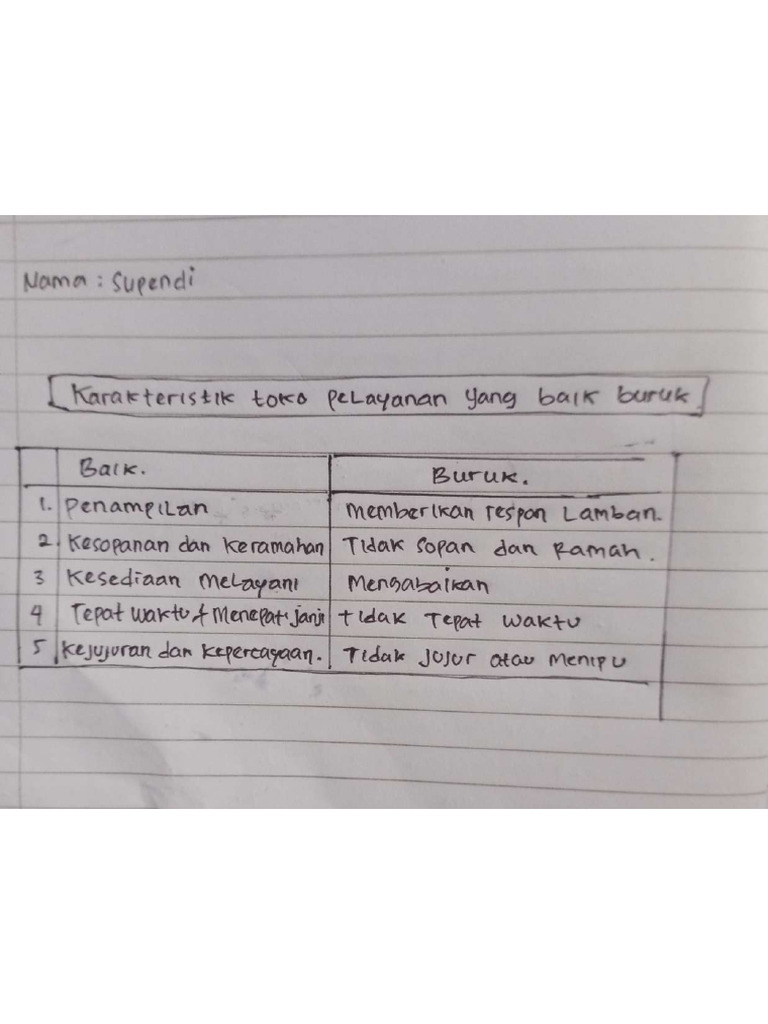 Nama : Supendi
Karakteristik toko pelayanan yang baik buruk.
Baik. Buruk.
1. Penampilan Memberikan respon Lamban.
2. Kesopanan dan keramahan Tidak sopan dan Ramah.
3 Kesediaan Melayani Mengabaikan
4 Tepat waktu + Menepati janji tidak Tepat waktu
5 Kejujuran dan kepercayaan. Tidak jujur atau Menipu